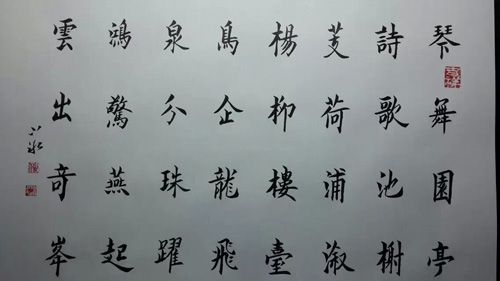 琴舞園亭
詩歌池榭
芰荷浦溆
楊柳樓臺
鳥企龍飛
泉分珠躍
鴻驚燕起
雲出奇峯